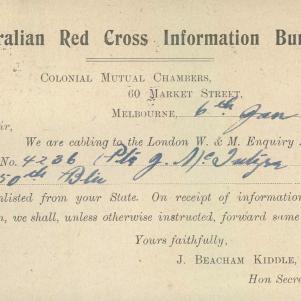 ralian Red Cross Information Bu
Colonial Mutual Chambers,
60 Market Street,
Melbourne, 6th Jan
ir,
We are cabling to the London W. & M. Enquiry
No. 4236 (Pte J. McIntyre
50th Btn
nlisted from your State. On receipt of information
n, we shall, unless otherwise instructed, forward same
Yours faithfully,
J. BEACHAM KIDDLE,
Hon Secre